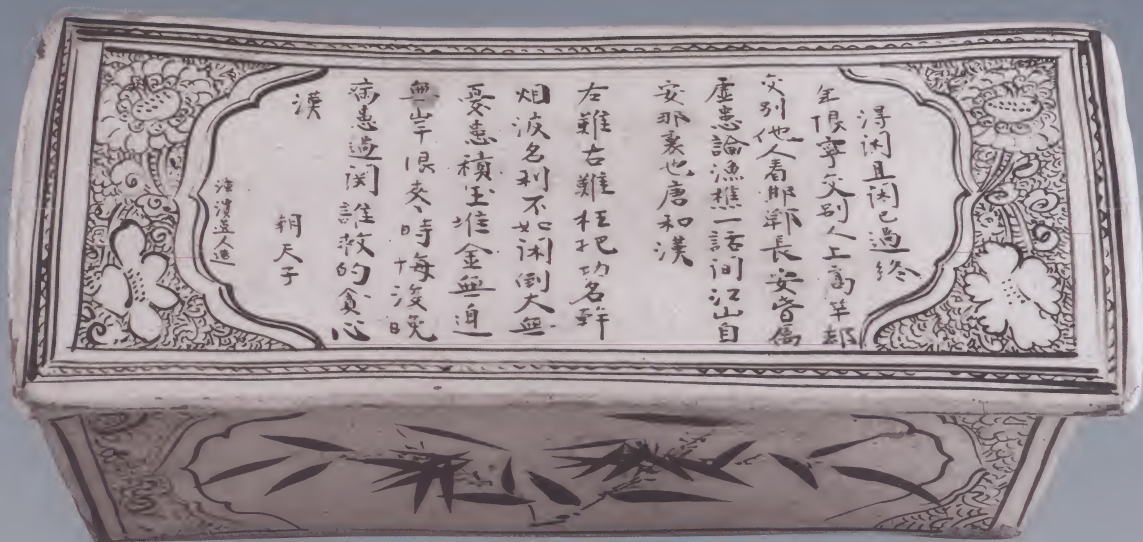 淂闲且闲已過終
年限寧交别人上高竿却
交别他人看邯鄲長安音信
虚患論漁樵一話间江山自
安那裏也唐和漢
左難右難枉把功名幹
烟波名利不如闲倒大無
憂患積玉堆金無邉
無岸限来時悔後免
病患過関誰救的貪心
漢
朝天子
漳濱逸人造